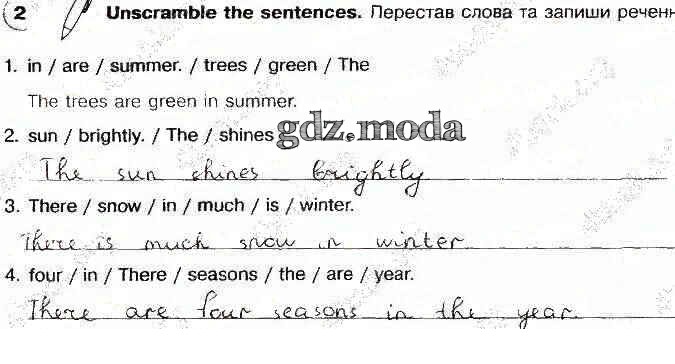 2 Unscramble the sentences. Перестав слова та запиши реченн
1. in / are / summer. / trees / green / The
The trees are green in summer.
2. sun / brightly. / The / shines gdz.moda
The sun shines brightly
3. There / snow / in / much / is / winter.
There is much snow in winter
4. four / in / There / seasons / the / are / year.
There are four seasons in the year.